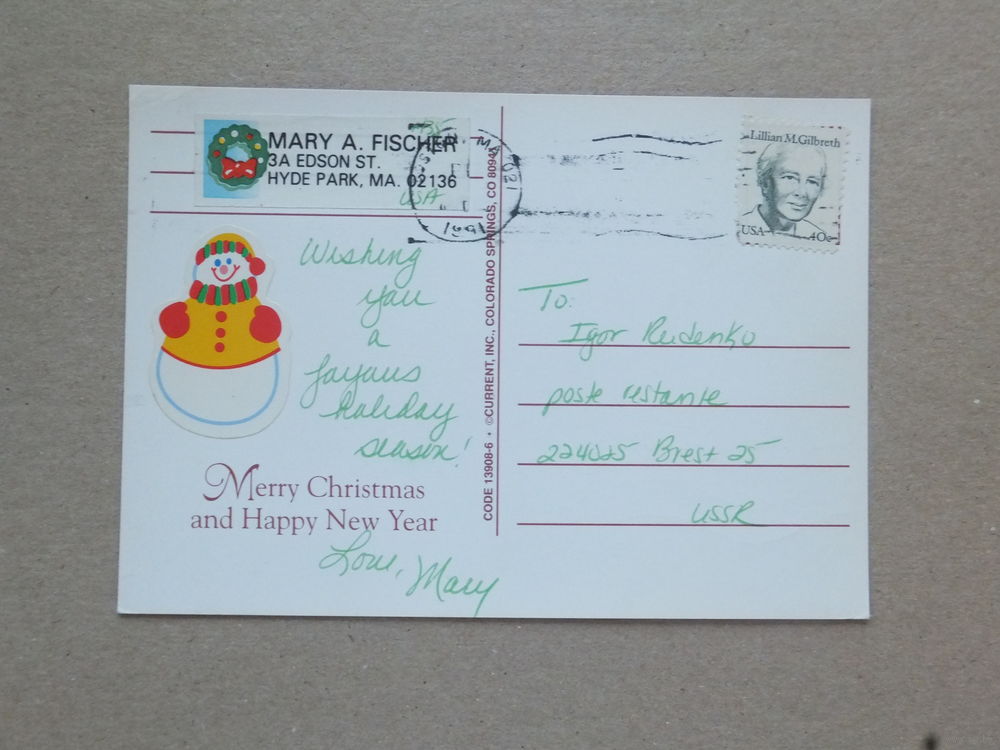 MARY A. FISCHER
3A EDSON ST.
HYDE PARK, MA. 02136
USA
1991
Lillian M. Gilbreth
USA
40c
Wishing
you
a
Joyous
holiday
season!
Merry Christmas
and Happy New Year
Love, Mary
CODE 13908-6 • ©CURRENT, INC., COLORADO SPRINGS, CO 80941
To:
Igor Rudenko
poste restante
224025 Brest 25
USSR